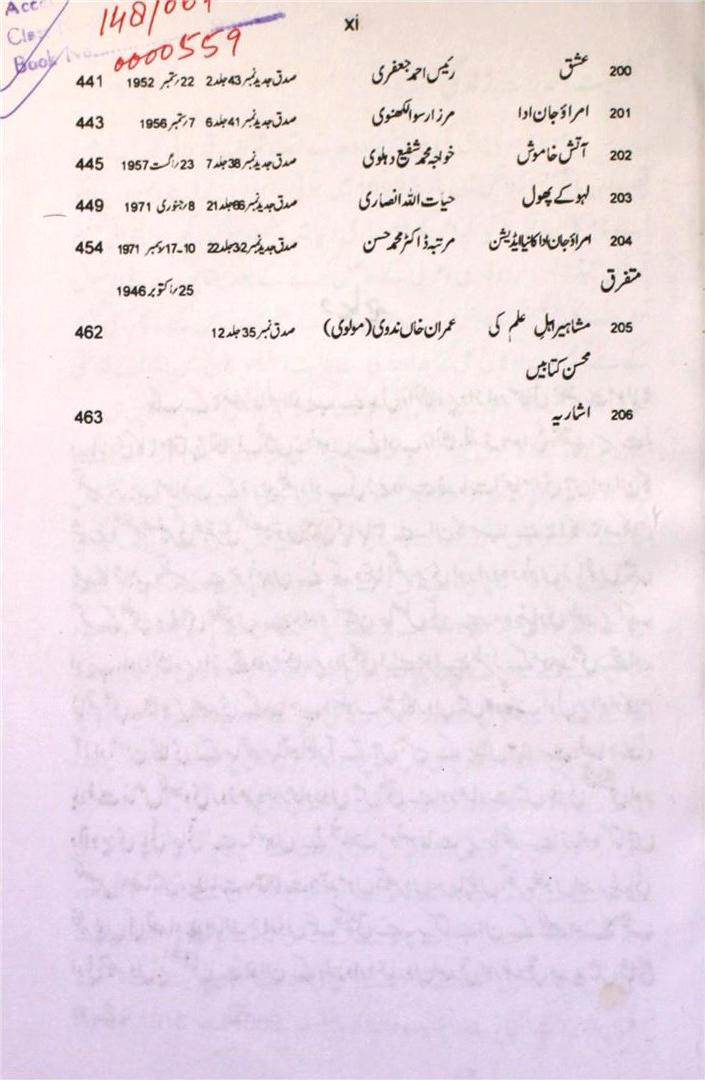 Acc
148/001
Cla
0000559
Book No
xi
200 عشق رئیس احمد جعفری صدق جدید نمبر 43 جلد 2 22 ستمبر 1952 441
201 امراؤ جان ادا مرزا رسوا لکھنوی صدق جدید نمبر 41 جلد 6 7 ستمبر 1956 443
202 آتش خاموش خواجہ محمد شفیع دہلوی صدق جدید نمبر 38 جلد 7 23 اگست 1957 445
203 لہو کے پھول حیات اللہ انصاری صدق جدید نمبر 66 جلد 21 8 جنوری 1971 449
204 امراؤ جان ادا کا نیا ایڈیشن مرتبہ ڈاکٹر محمد حسن صدق جدید نمبر 32 جلد 22 10-17 دسمبر 1971 454
متفرق
25 اکتوبر 1946
205 مشاہیر اہلِ علم کی عمران خاں ندوی (مولوی) صدق نمبر 35 جلد 12 462
محسن کتابیں
206 اشاریہ 463